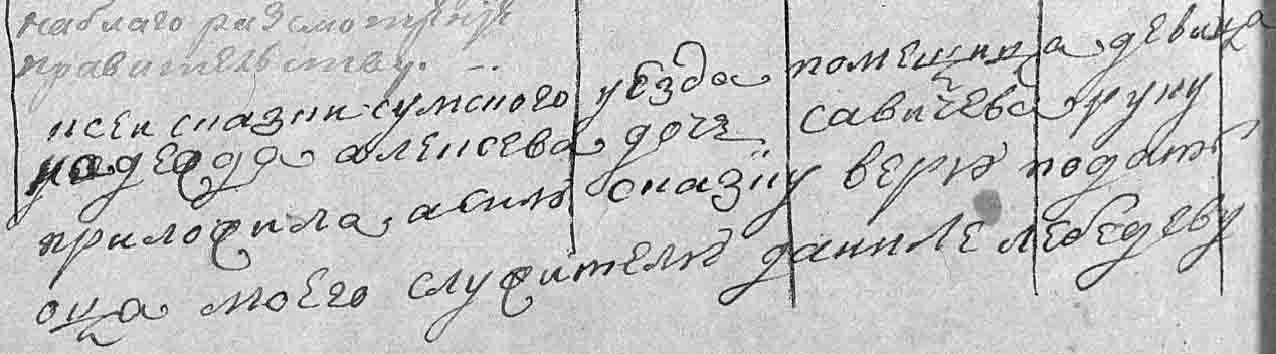 на благо разсмотрение
правительству.
к сеи скаски сумского уезда помещица девица
надежда алексеева дочь савичева руку
приложила а сию сказку верю подать
оца моего служителю даниле лебедеву